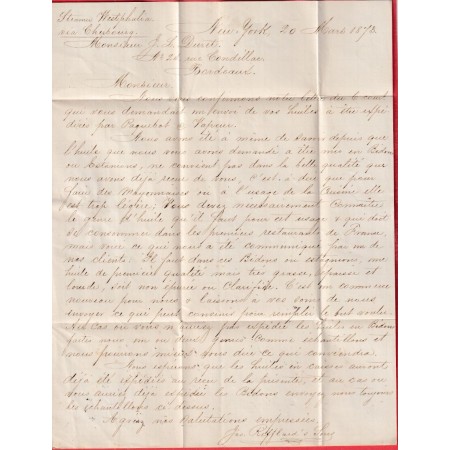 Steamer Westphalia
via Cherbourg.
New-York, 20 Mars 1873.
Monsieur J. h. Duret
No 25 rue Condillac
Bordeaux.
Monsieur
Nous vous confirmons notre lettre du 6 ct
vous demandant envoi de vos huiles à être expé
diées par Paquebot à Vapeur.
Nous avons été à même de savoir depuis que
l'huile que nous vous avons demandé à être mis en Bidons
ou Estamons, ne convient pas dans la belle qualité que
nous avons déjà reçue de vous. C'est à dire que pour
faire des Mayonnaises ou à l'usage de la Cuisine elle
est trop légère; Vous devez nécessairement connaître
le genre d'huile qu'il faut pour cet usage & qui doit
se consommer dans les premiers restaurants de France,
mais voici ce qui nous a été communiqué par un de
nos clients: Il faut dans ces Bidons ou estamons, une
huile de première qualité mais très grasse, épaisse et
lourde, soit non épurée ou Clarifiée. C'est un
nouveau pour nous & laissons à vos soins de nous
envoyer ce que peut convenir pour remplir le but voulu.
Au cas où vous n'auriez pas expédié les huiles en Bidons
faites nous un ou deux comme échantillons et
nous pourrons mieux vous dire ce qui conviendra.
Nous espérons que les huiles en caisses auront
déjà été expédiées au reçu de la présente, et au cas où
vous auriez déjà expédié les Bidons envoyez nous toujours
les échantillons ci dessus.
Agréez nos salutations empressées,